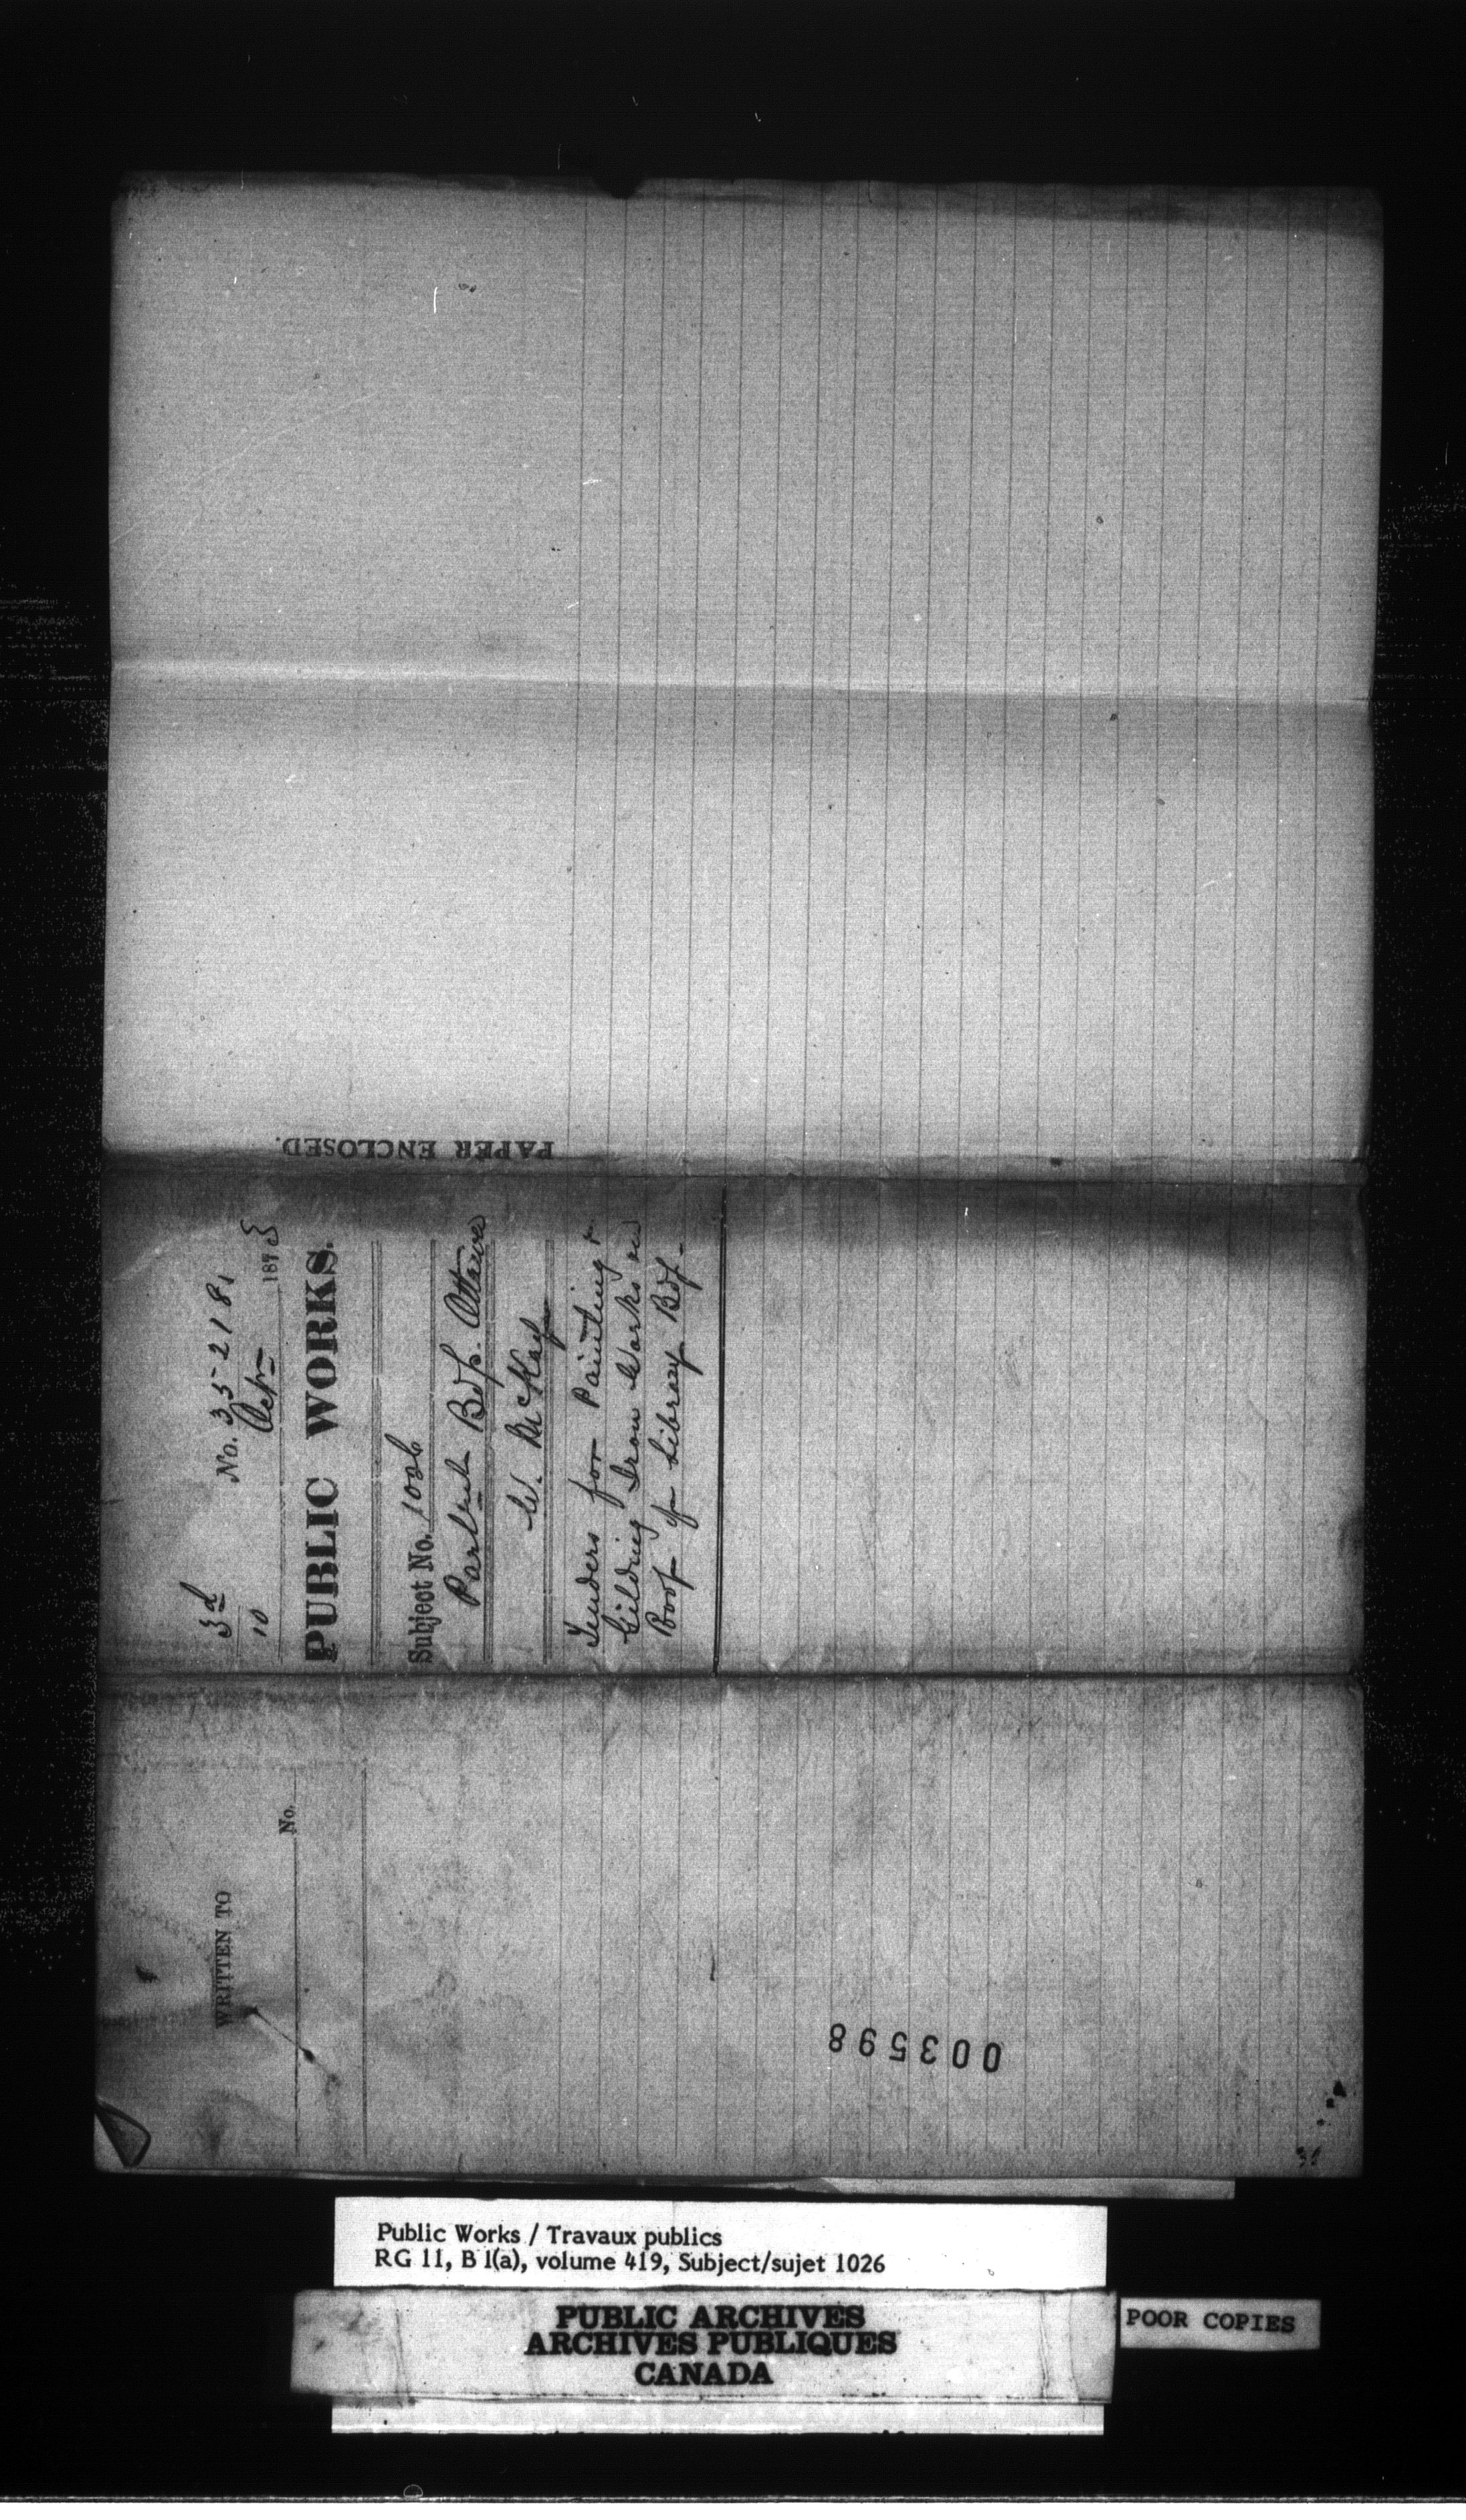 3d
10
No. 352181
Octr 1873
PUBLIC WORKS.
Subject No. 1026
Parlmt Bdf. Ottawa
W. McKay
Tenders for Painting &
Gilding Iron Works on
Roof of Library Bdf.
PAPER ENCLOSED.
WRITTEN TO
No.
003598
Public Works / Travaux publics
RG 11, B 1(a), volume 419, Subject/sujet 1026
PUBLIC ARCHIVES
ARCHIVES PUBLIQUES
CANADA
POOR COPIES